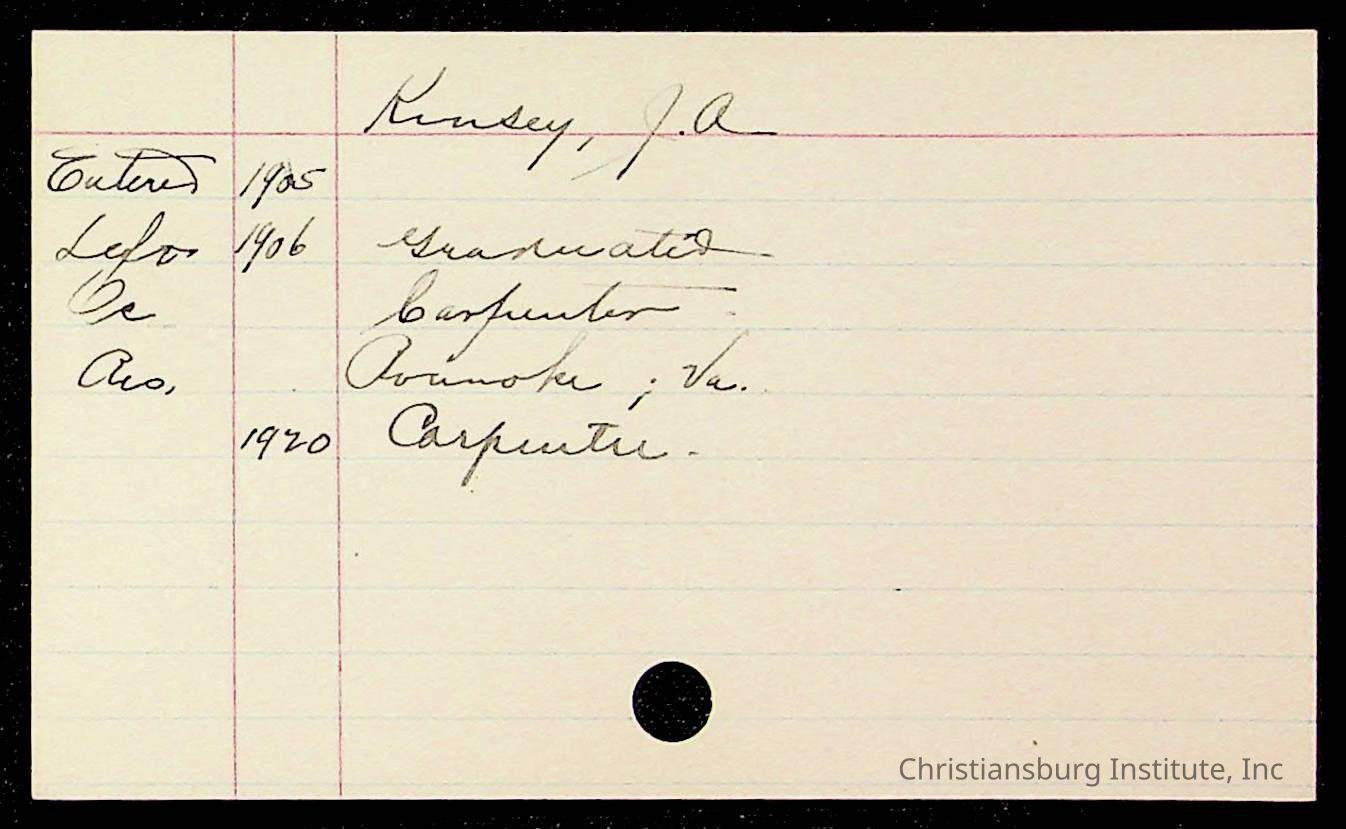 Kinsey, J.A
Entered 1905
Left 1906 Graduated
Oc Carpenter
Res. Roanoke, Va.
1920 Carpenter.
Christiansburg Institute, Inc